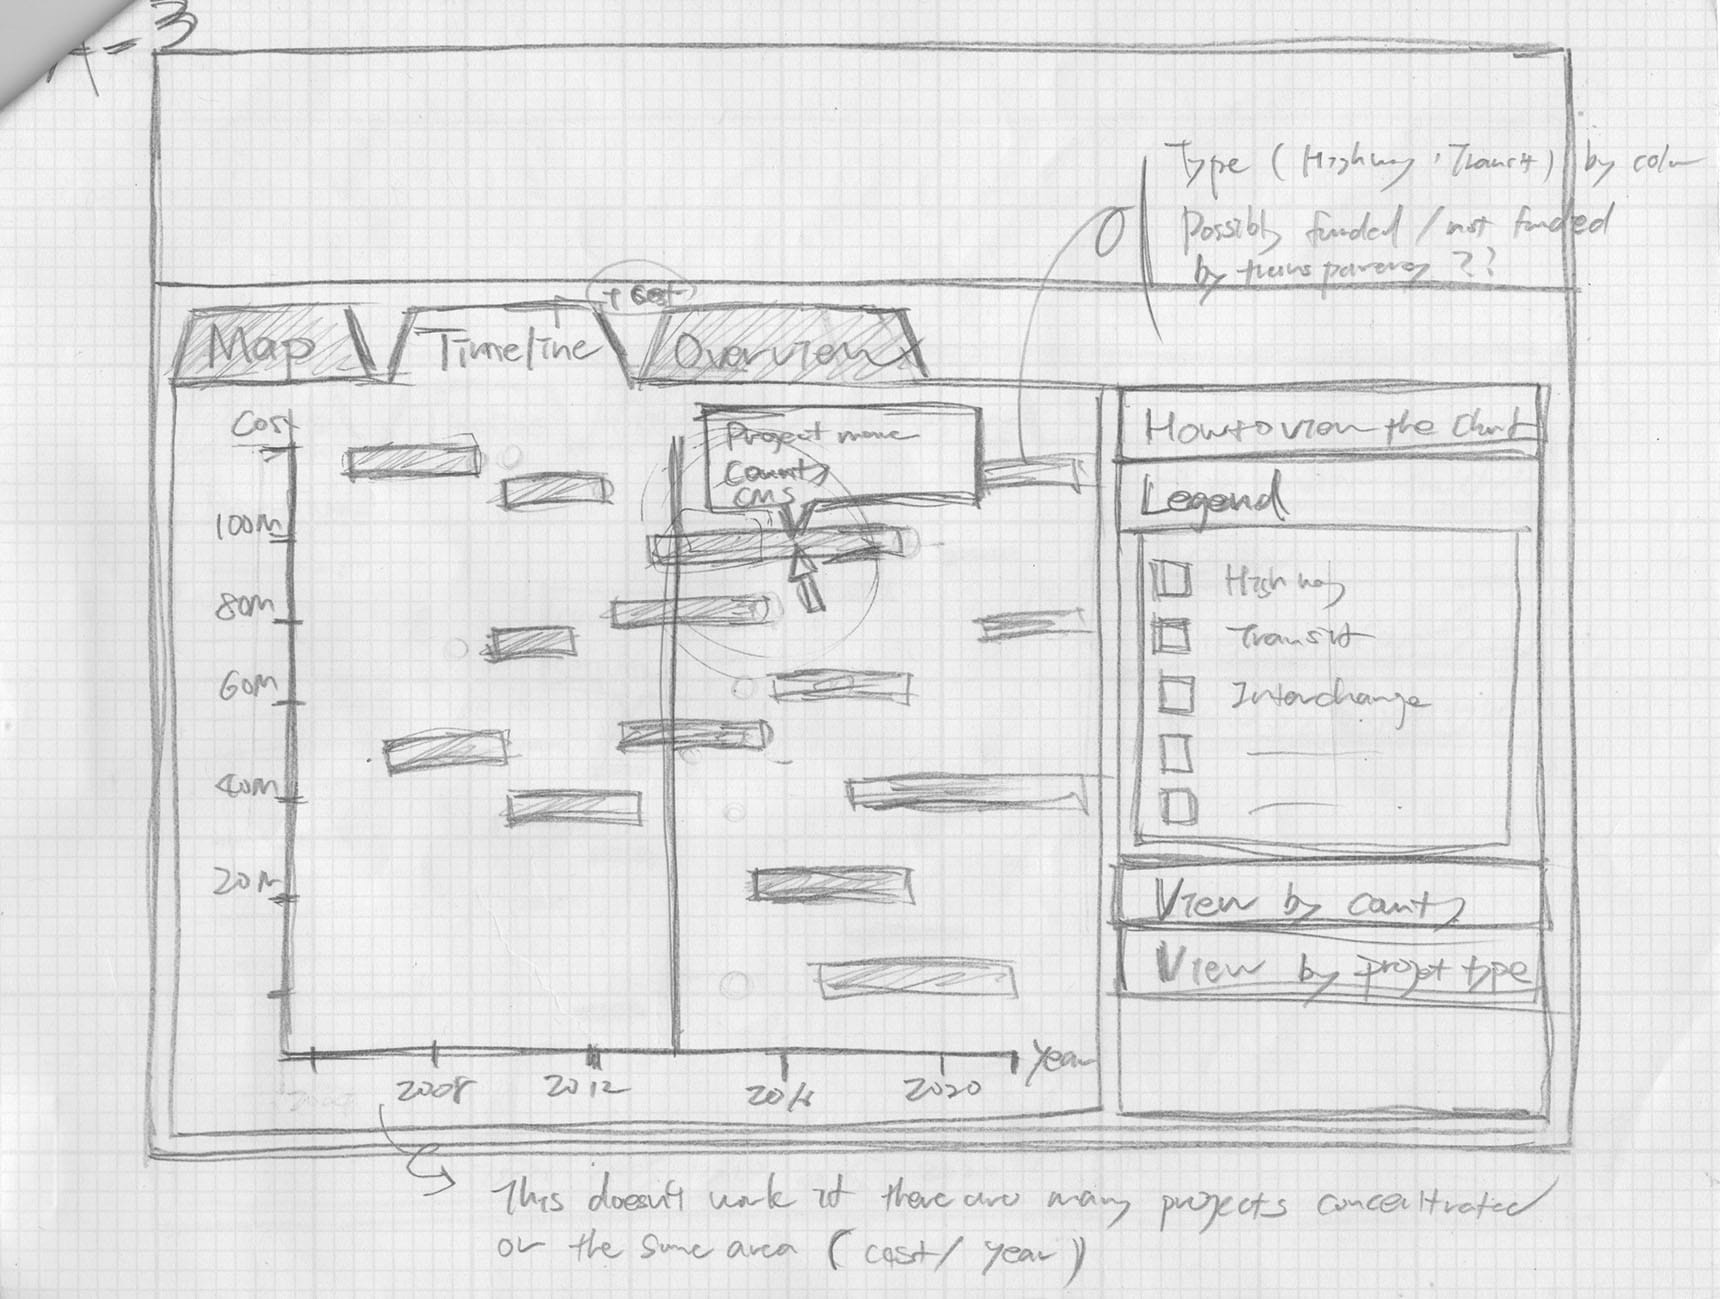 A-3
Type (Highway, Transit) by color
Possibly funded / not funded
by transparency ??
+ cost
Map
Timeline
Overview
Cost
100M
80M
60M
40M
20M
Project name
County
CMS
2008
2012
2016
2020
Year
How to view the chart
Legend
Highway
Transit
Interchange
View by county
View by project type
This doesn't work if there are many projects concentrated
on the same area (cost / year)